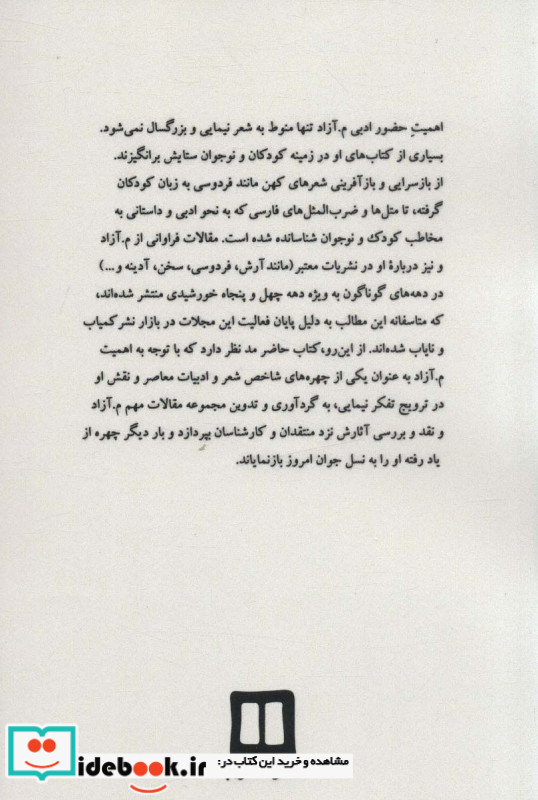 اهمیتِ حضور ادبی م.آزاد تنها منوط به شعر نیمایی و بزرگسال نمی‌شود.
بسیاری از کتاب‌های او در زمینه کودکان و نوجوان ستایش برانگیزند.
از بازسرایی و بازآفرینی شعرهای کهن مانند فردوسی به زبان کودکان
گرفته، تا مثل‌ها و ضرب‌المثل‌های فارسی که به نحو ادبی و داستانی به
مخاطب کودک و نوجوان شناسانده شده است. مقالات فراوانی از م.آزاد
و نیز دربارهٔ او در نشریات معتبر (مانند آرش، فردوسی، سخن، آدینه و...)
در دهه‌های گوناگون به ویژه دهه چهل و پنجاه خورشیدی منتشر شده‌اند،
که متاسفانه این مطالب به دلیل پایان فعالیت این مجلات در بازار نشر کمیاب
و نایاب شده‌اند. از این‌رو، کتاب حاضر مد نظر دارد که با توجه به اهمیت
م.آزاد به عنوان یکی از چهره‌های شاخص شعر و ادبیات معاصر و نقش او
در ترویج تفکر نیمایی، به گردآوری و تدوین مجموعه مقالات مهم م.آزاد
و نقد و بررسی آثارش نزد منتقدان و کارشناسان بپردازد و بار دیگر چهره از
یاد رفته او را به نسل جوان امروز بازنمایاند.
مشاهده و خرید این کتاب در:
idebook.ir